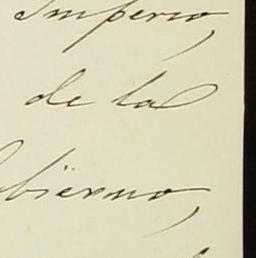 Imperio,
de la
obierno,